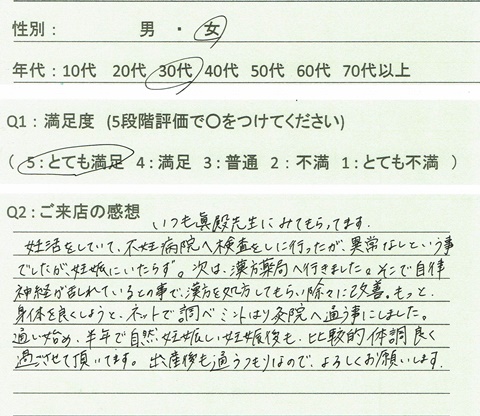 性別： 男 ・ 女
年代：10代 20代 30代 40代 50代 60代 70代以上
Q1：満足度 (5段階評価で〇をつけてください)
( 5：とても満足 4：満足 3：普通 2：不満 1：とても不満 )
Q2：ご来店の感想
いつも真殿先生にみてもらってます。
妊活をしていて、不妊病院へ検査をしに行ったが、異常なしという事
でしたが、妊娠にいたらず。次は、漢方薬局へ行きました。そこで自律
神経が乱れているとの事で、漢方を処方してもらい除々に改善。もっと、
身体を良くしようと、ネットで調べミントはり灸院へ通う事にしました。
通い始め、半年で自然妊娠しい妊娠後も、比較的体調良く
過ごさせて頂いてます。出産後も通うつもりなので、よろしくお願いします。